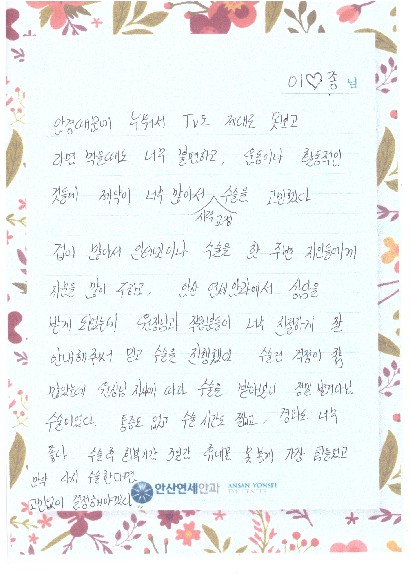 이♡종 님
안경때문에 누워서 TV도 제대로 못보고
라면 먹을때도 너무 불편하고, 운동이나 활동적인
것들에 제약이 너무 많아서 수술을 고민했다
시력교정
겁이 많아서 안에렌이나 수술을 한 주변 지인들에게
자문을 많이 구하고, 안산 연세안과에서 상담을
받게 되었는데 원장님과 직원분들이 너무 친절하게 잘
안내해주셔서 믿고 수술을 진행했다 수술전 걱정이 참
많았는데 원장님 지시에 따라 수술을 받다보니 정말 별거아닌
수술이었다. 통증도 없고 수술시간도 짧고, 결과도 너무
좋다. 수술 후 회복기간 3일간 휴대폰 못본게 가장 힘들었고
만약 다시 수술한다면
고민없이 결정해야겠다
안산연세안과
ANSAN YONSEI
EYE CENTER